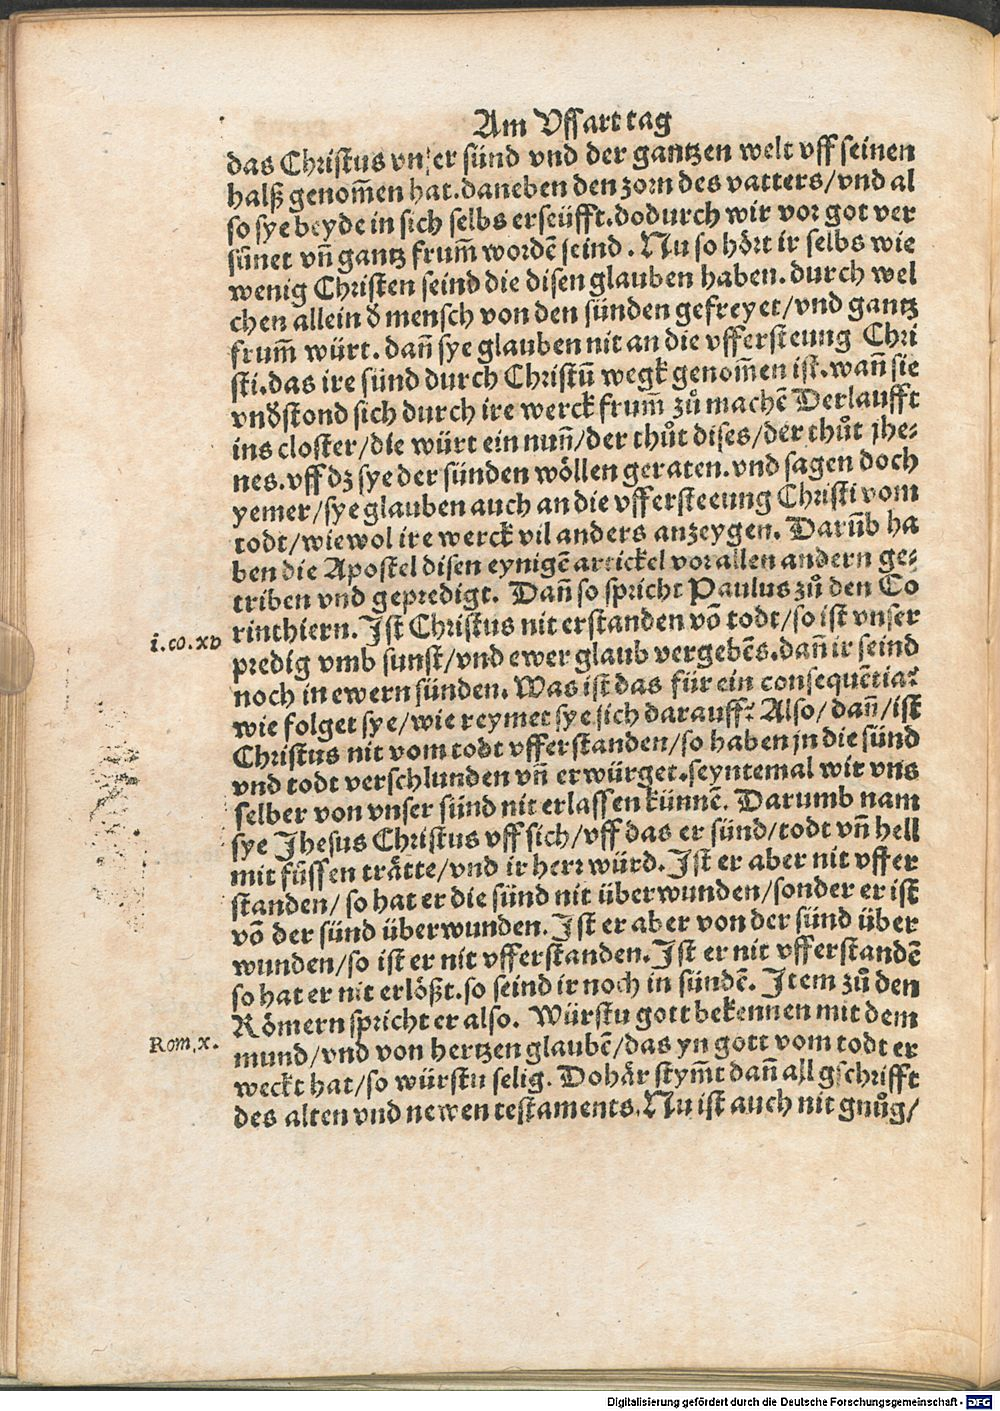 Am Vffart tag
das Christus vnser sünd vnd der gantzen welt vff seinen
halß genom̄en hat. daneben den zorn des vatters/ vnd al
so sye beyde in sich selbs erseüfft. dodurch wir vor got ver
sünet vn̄ gantz frum̄ wordē seind. Nu so hört ir selbs wie
wenig Christen seind die disen glauben haben. durch wel
chen allein d̓ mensch von den sünden gefreyet/ vnd gantz
frum̄ würt. dan̄ sye glauben nit an die vffersteung Chri
sti. das ire sünd durch Christū wegk genom̄en ist. wan̄ sie
vnd̓stond sich durch ire werck frum̄ zů machē Der laufft
ins closter/ die würt ein nun̄/ der thůt dises/ der thůt jhe⸗
nes. vff dz sye der sünden wöllen geraten. vnd sagen doch
yemer/ sye glauben auch an die vffersteeung Christi vom
todt/ wiewol ire werck vil anders anzeygen. Darūb ha
ben die Apostel disen eynigē artickel vor allen andern ge⸗
triben vnd gepredigt. Dan̄ so spricht Paulus zů den Co
rinthiern. Ist Christus nit erstanden vō todt/ so ist vnser
i. co. xv
predig vmb sunst/ vnd ewer glaub vergebēs. dan̄ ir seind
noch in ewern sünden. Was ist das für ein consequētia?
wie folget sye/ wie reymet sye sich darauff? Also/ dan̄/ ist
Christus nit vom todt vfferstanden/ so haben jn die sünd
vnd todt verschlunden vn̄ erwürget. seyntemal wir vns
selber von vnser sünd nit erlassen künnē. Darumb nam
sye Jhesus Christus vff sich/ vff das er sünd/ todt vn̄ hell
mit füssen trätte/ vnd ir herr würd. Ist er aber nit vffer
standen/ so hat er die sünd nit überwunden/ sonder er ist
vō der sünd überwunden. Ist er aber von der sünd über
wunden/ so ist er nit vfferstanden. Ist er nit vfferstandē
so hat er nit erlößt. so seind ir noch in sündē. Item zů den
Römern spricht er also. Würstu gott bekennen mit dem
Rom. x.
mund/ vnd von hertzen glaubē/ das yn gott vom todt er
weckt hat/ so würstu selig. Dohär stym̄t dan̄ all gschrifft
des alten vnd newen testaments. Nu ist auch nit gnůg/
Digitalisierung gefördert durch die Deutsche Forschungsgemeinschaft - DFG